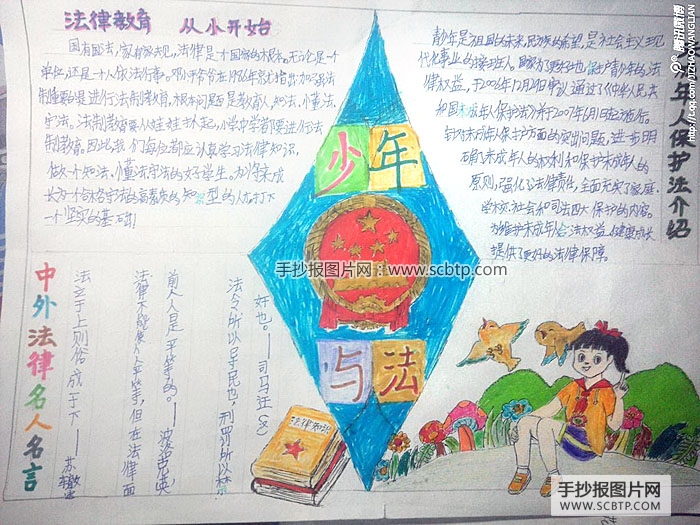 法律教育 从小开始
国有国法,家有家规,法律是一个国家的根本。无论是一个
单位,还是个人依法行事。邓小平爷爷在1986年就指出:加强法
制重要的是进行法制教育,根本问题是教育人。知法、懂法、
守法。法制教育要从娃娃抓起,小学中学都要进行法
制教育。因此我们每位都应认真学习法律知识,
做一个知法、懂法守法的好学生。为将来成
长为一个合格守法的高素质的知识型的人才打下
一个坚实的基础!
少年
与法
青少年是祖国的未来,民族的希望,是社会主义现
代化事业的接班人。国家为了更好地保护青少年的法
律权益,于2006年12月29日审议通过了《中华人民共
和国未成年人保护法》并于2007年6月1日起施行。
针对未成年人保护方面的突出问题,进一步明
确了未成年人的权利和保护未成年人的
原则,强化了法律责任,全面充实了家庭、
学校、社会和司法四大保护的内容。
为维护未成年人合法权益,健康成长
提供了更好的法律保障。
年人保护法介绍
中外法律名人名言
法令所以导民也,刑罚所以禁
奸也。——司马迁(汉)
前人人是平等的。——波洛克(英)
法律不能使人人平等,但在法律面
法立于上则俗成于下——苏辙(宋)
法律知识
手抄报图片网:www.scbtp.com
手抄报图片网
www.scbtp.com
腾讯微博
http://t.qq.com/JTZHAOYANGLIAN